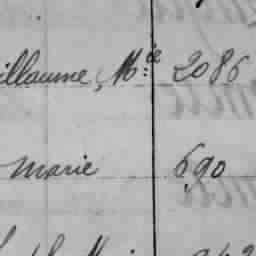 illaume, M^ie 2086
Marie 690